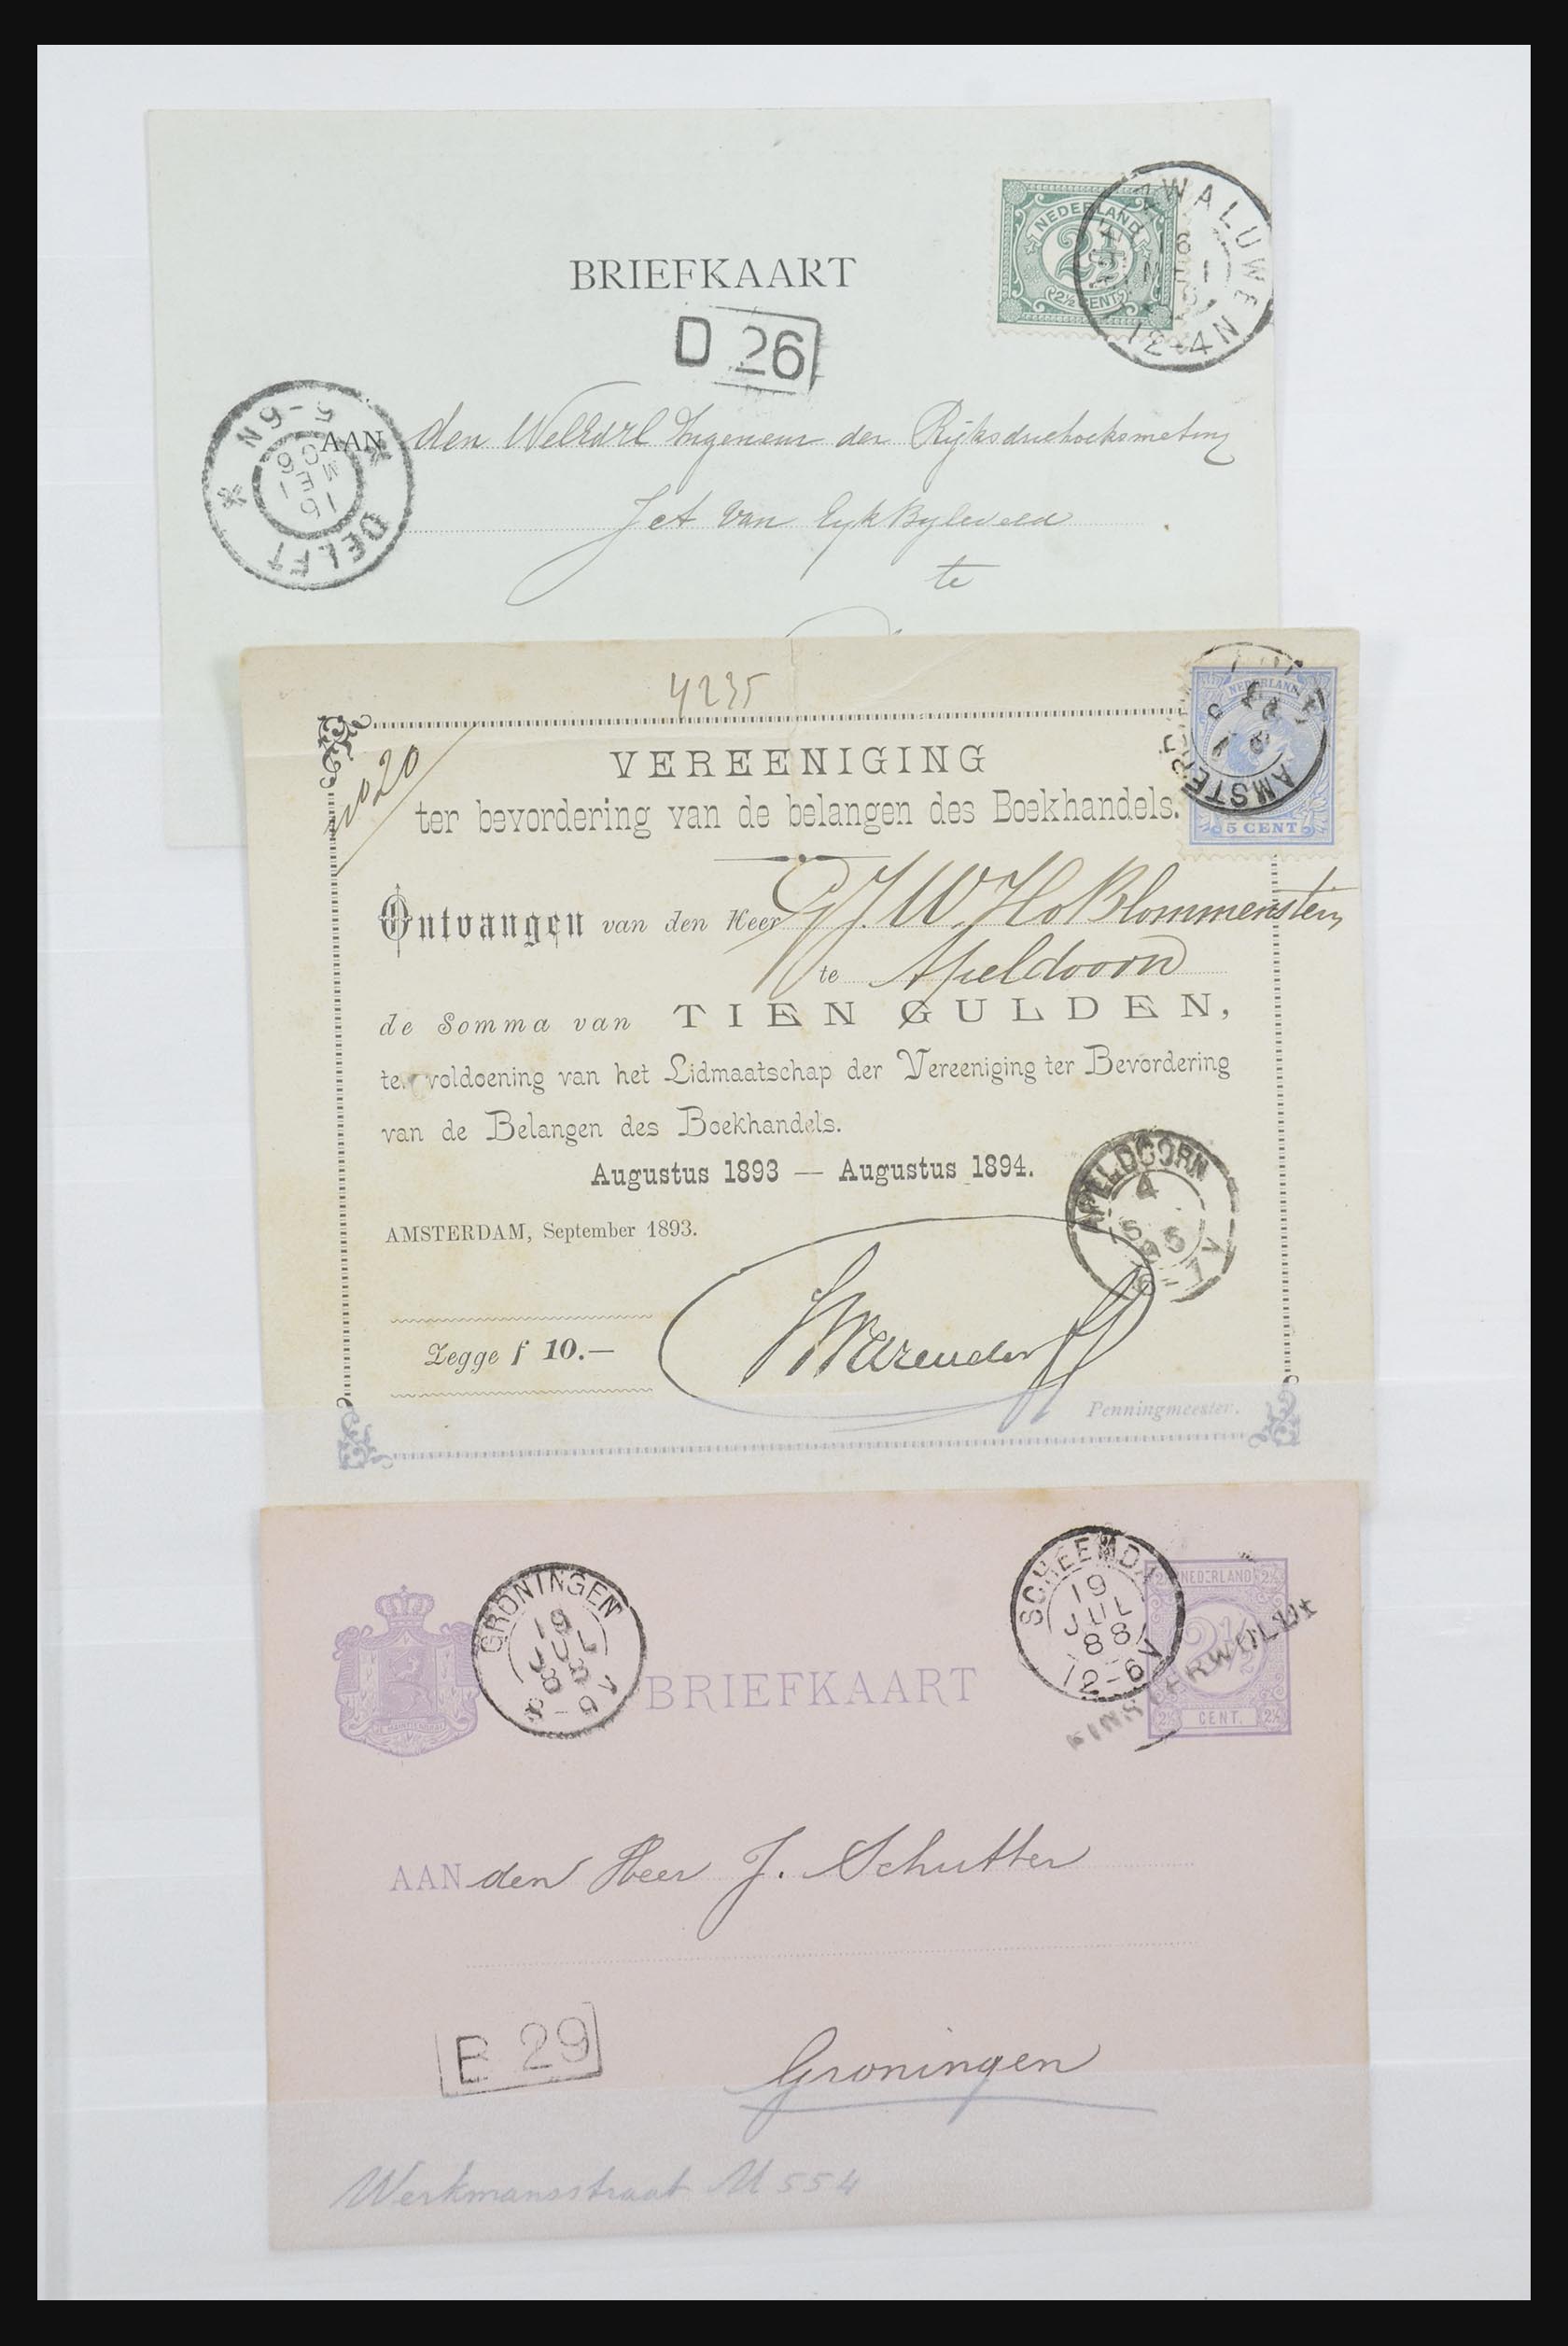 BRIEFKAART
NEDERLAND
2½
2½ CENT
ZWALUWE
16
12-4N
D 26
5-6N
AAN den WelEdel Ingenieur der Rijksdriehoeksmeting
16 MEI 06
DELFT
Jct van Eyk Byleveld
te
4235
NEDERLAND
5 CENT
AMSTERDAM
No 20
VEREENIGING
ter bevordering van de belangen des Boekhandels.
Ontvangen van den Heer G.J.W. Ho Blommenstein
te Apeldoorn
de Somma van TIEN GULDEN,
ter voldoening van het Lidmaatschap der Vereeniging ter Bevordering
van de Belangen des Boekhandels.
Augustus 1893 — Augustus 1894.
APELDOORN
4
6-7V
AMSTERDAM, September 1893.
Zegge f 10.—
Warendorff
Penningmeester.
GRONINGEN
19 JUL 88
6-8V
SCHEEMDA
19 JUL 88
12-6V
NEDERLAND
2½
CENT.
FINSTERWOLDE
BRIEFKAART
AAN den Heer J. Schutter
B 29
Groningen
Werkmansstraat M 554